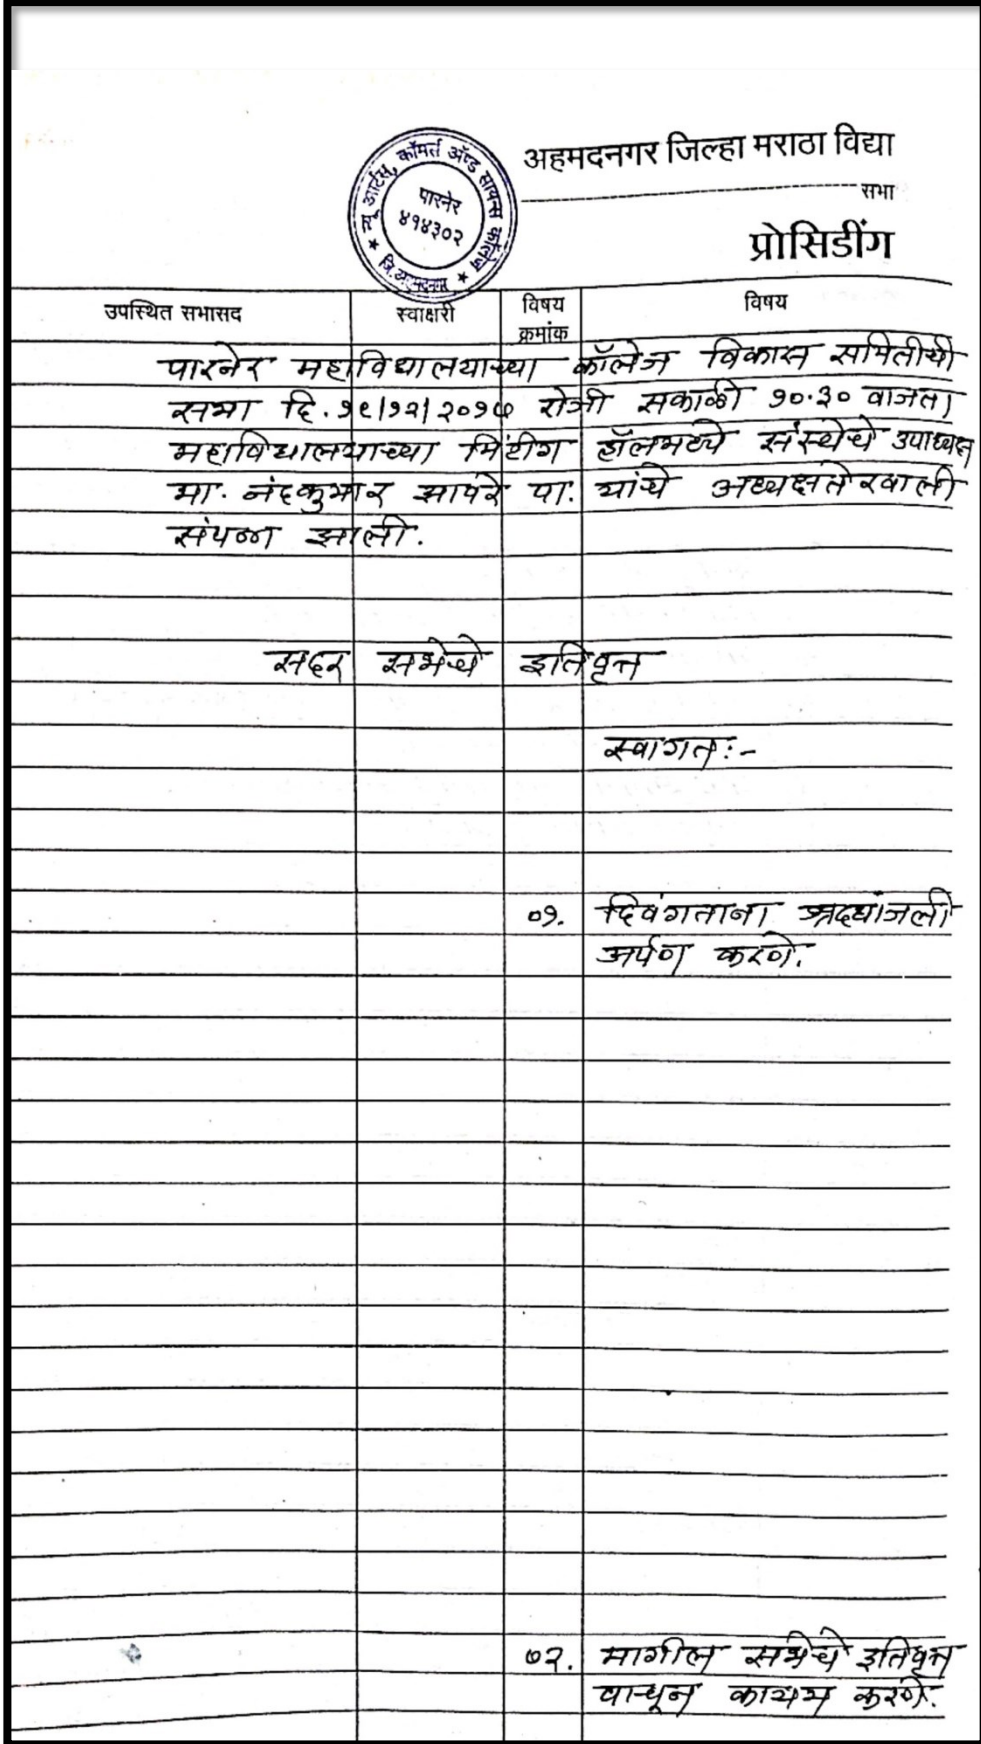 अहमदनगर जिल्हा मराठा विद्या
सभा
प्रोसिडींग
न्यू आर्टस्, कॉमर्स ॲण्ड सायन्स कॉलेज
पारनेर
४१४३०२
जि. अहमदनगर
उपस्थित सभासद स्वाक्षरी विषय क्रमांक विषय
पारनेर महाविद्यालयाच्या कॉलेज विकास समितीची
सभा दि. १९/१२/२०१७ रोजी सकाळी १०.३० वाजता
महाविद्यालयाच्या मिटींग हॉलमध्ये संस्थेचे उपाध्यक्ष
मा. नंदकुमार झावरे पा. यांचे अध्यक्षतेखाली
संपन्न झाली.
सदर सभेचे इतिवृत्त
स्वागत:-
०१. दिवंगताना श्रद्धांजली
अर्पण करणे.
०२. मागील सभेचे इतिवृत्त
वाचून कायम करणे.